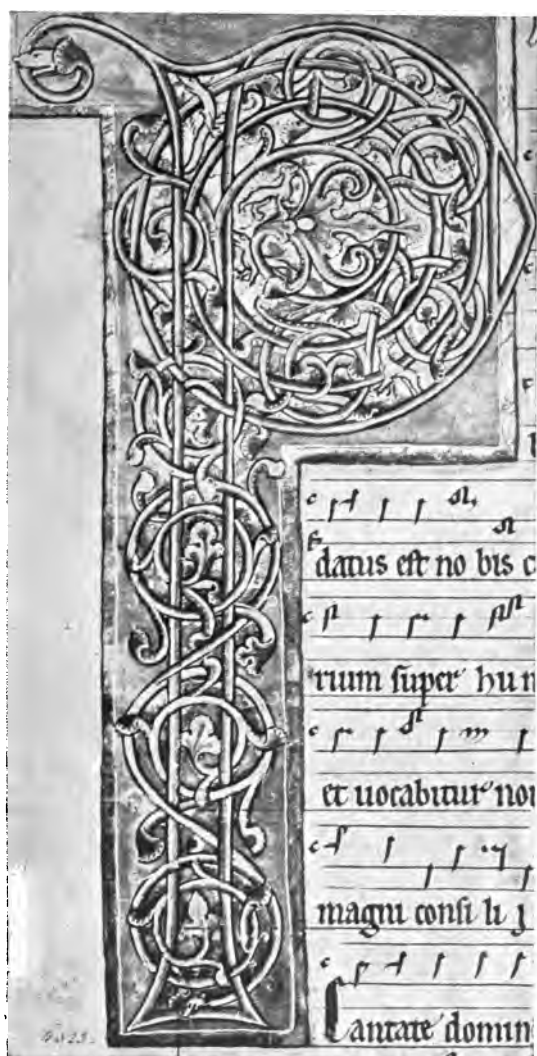 P
datus est no bis c
rium super hu
et uocabitur noi
magni consi li j
Cantate domin